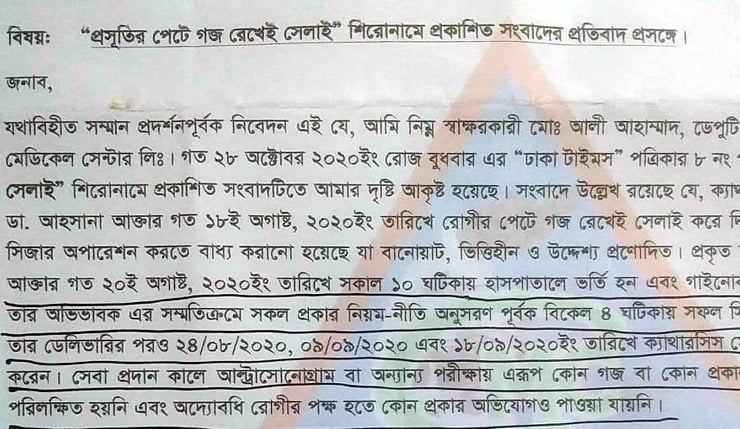 বিষয়ঃ “প্রসূতির পেটে গজ রেখেই সেলাই” শিরোনামে প্রকাশিত সংবাদের প্রতিবাদ প্রসঙ্গে।
জনাব,
যথাবিহীত সম্মান প্রদর্শনপূর্বক নিবেদন এই যে, আমি নিম্ন স্বাক্ষরকারী মোঃ আলী আহাম্মাদ, ডেপুটি
মেডিকেল সেন্টার লিঃ। গত ২৮ অক্টোবর ২০২০ইং রোজ বুধবার এর “ঢাকা টাইমস” পত্রিকার ৮ নং
সেলাই” শিরোনামে প্রকাশিত সংবাদটিতে আমার দৃষ্টি আকৃষ্ট হয়েছে। সংবাদে উল্লেখ রয়েছে যে, ক্যাথ
ডা. আহসানা আক্তার গত ১৮ই অগাষ্ট, ২০২০ইং তারিখে রোগীর পেটে গজ রেখেই সেলাই করে দি
সিজার অপারেশন করতে বাধ্য করানো হয়েছে যা বানোয়াট, ভিত্তিহীন ও উদ্দেশ্য প্রণোদিত। প্রকৃত
আক্তার গত ২০ই অগাষ্ট, ২০২০ইং তারিখে সকাল ১০ ঘটিকায় হাসপাতালে ভর্তি হন এবং গাইনোক
তার অভিভাবক এর সম্মতিক্রমে সকল প্রকার নিয়ম-নীতি অনুসরণ পূর্বক বিকেল ৪ ঘটিকায় সফল সি
তার ডেলিভারির পরও ২৪/০৮/২০২০, ০৯/০৯/২০২০ এবং ১৮/০৯/২০২০ইং তারিখে ক্যাথারসিস মে
করেন। সেবা প্রদান কালে আল্ট্রাসোনোগ্রাম বা অন্যান্য পরীক্ষায় এরূপ কোন গজ বা কোন প্রকা
পরিলক্ষিত হয়নি এবং অদ্যোবধি রোগীর পক্ষ হতে কোন প্রকার অভিযোগও পাওয়া যায়নি।